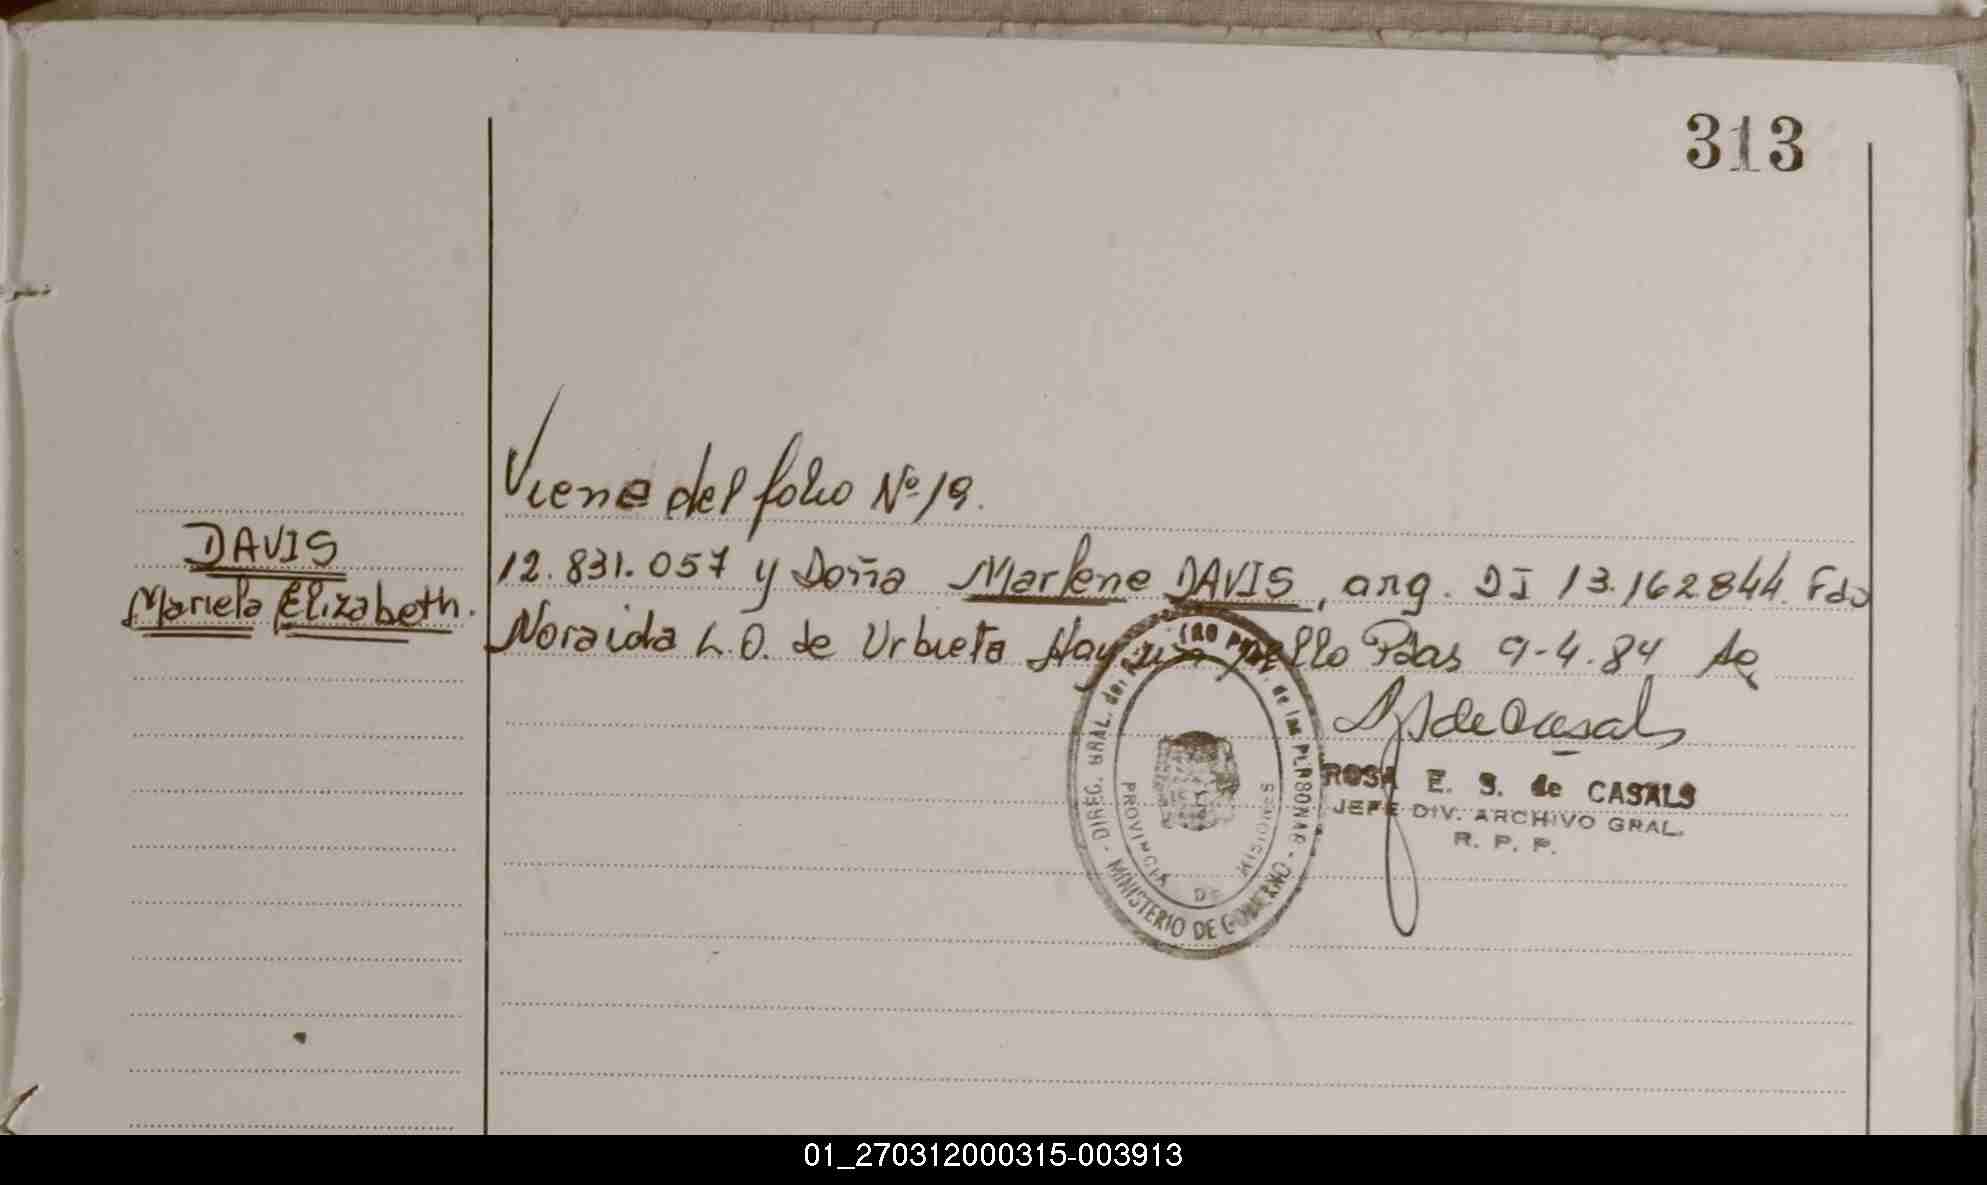 313
Viene del folio Nº 19.
DAVIS
Mariela Elizabeth.
12.831.057 y Doña Marlene DAVIS, arg. DI 13.162844. Fdo
Noraida L.O. de Urbieta Hay sello Pdas 9-4.84
DIREC. GRAL. del de las PERSONAS - MINISTERIO DE GOBIERNO -
PROVINCIA DE MISIONES
ROSA E. S. de CASALS
JEFE DIV. ARCHIVO GRAL.
R. P. P.
01_270312000315-003913